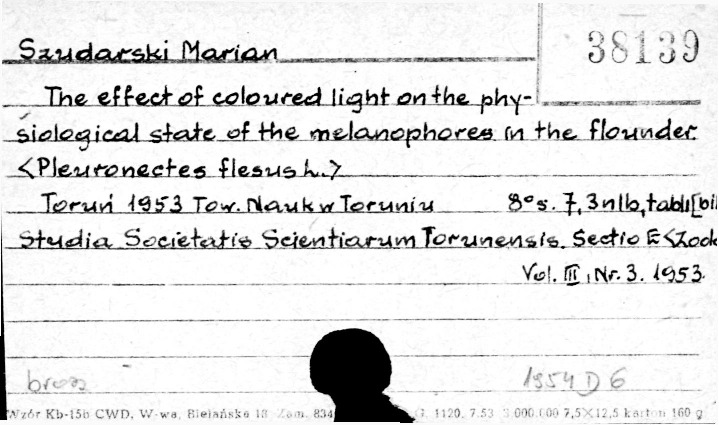 38139
Szudarski Marian
The effect of coloured light on the phy-
siological state of the melanophores in the flounder
<Pleuronectes flesus L.>
Toruń 1953 Tow. Nauk w Toruniu 8° s. 7, 3 nlb, tabl 1 [bi
Studia Societatis Scientiarum Torunensis. Sectio E <Zool
Vol. III, Nr. 3. 1953
brosz 1954 D 6
Wzór Kb-15b CWD, W-wa, Bielańska 18 Zam. 834 G. 1120. 7.53 3.000.000 7,5×12,5 karton 160 g